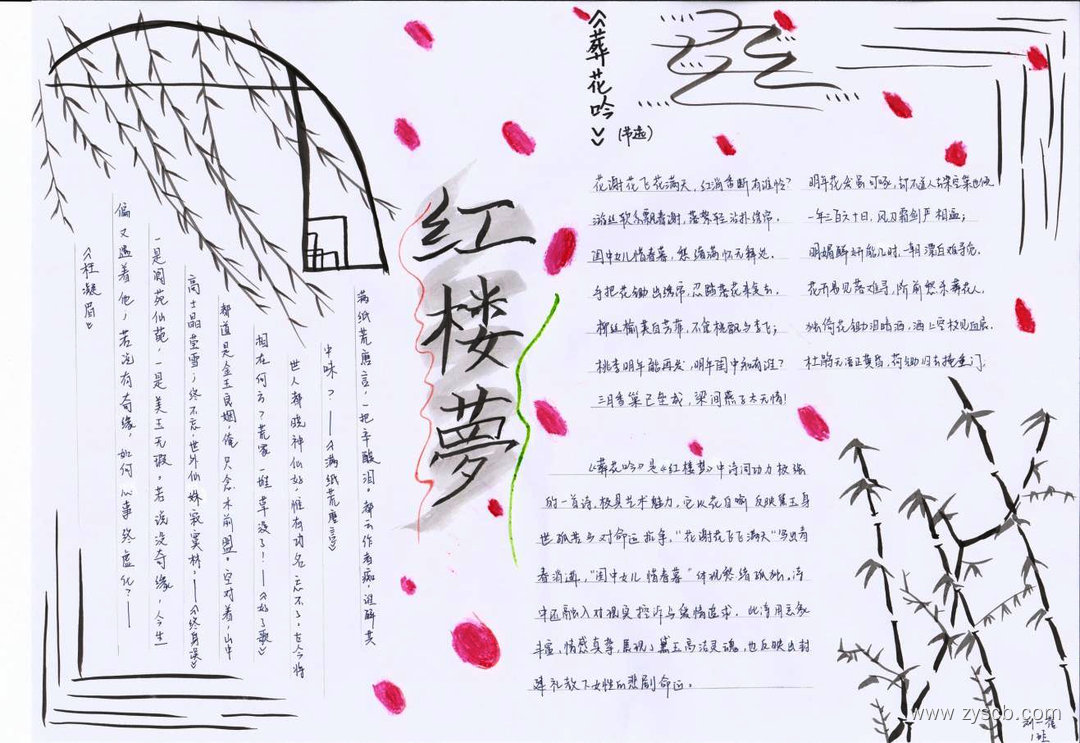 红楼夢
《葬花吟》
(节选)
花谢花飞花满天，红消香断有谁怜？
游丝软系飘春榭，落絮轻沾扑绣帘。
闺中女儿惜春暮，愁绪满怀无释处。
手把花锄出绣帘，忍踏落花来复去。
柳丝榆荚自芳菲，不管桃飘与李飞；
桃李明年能再发，明年闺中知有谁？
三月香巢已垒成，梁间燕子太无情！
明年花发虽可啄，却不道人去梁空巢也倾。
一年三百六十日，风刀霜剑严相逼；
明媚鲜妍能几时，一朝漂泊难寻觅。
花开易见落难寻，阶前愁杀葬花人，
独倚花锄泪暗洒，洒上空枝见血痕。
杜鹃无语正黄昏，荷锄归去掩重门。
《葬花吟》是《红楼梦》中诗词功力极强
的一首诗，极具艺术魅力，它以花自喻反映黛玉身
世孤苦与对命运抗争。"花谢花飞飞满天"写出青
春消逝，"闺中女儿惜春暮"体现愁绪孤独。诗
中还融入对现实控诉与爱情追求，此诗用
情感真挚，展现了黛玉高洁灵魂，也反映出封
建礼教下女性的悲剧命运。
满纸荒唐言，一把辛酸泪。都云作者痴，谁解其
中味？——《满纸荒唐言》
世人都晓神仙好，惟有功名忘不了。古今将
相在何方？荒冢一堆草没了！——《好了歌》
都道是金玉良姻，俺只念木石前盟。空对着，山中
高士晶莹雪；终不忘，世外仙姝寂寞林。——《终身误》
一是阆苑仙葩，一是美玉无瑕。若说没奇缘，今生
偏又遇着他；若说有奇缘，如何心事终虚化？——
《枉凝眉》
www.zyscb.com
1班